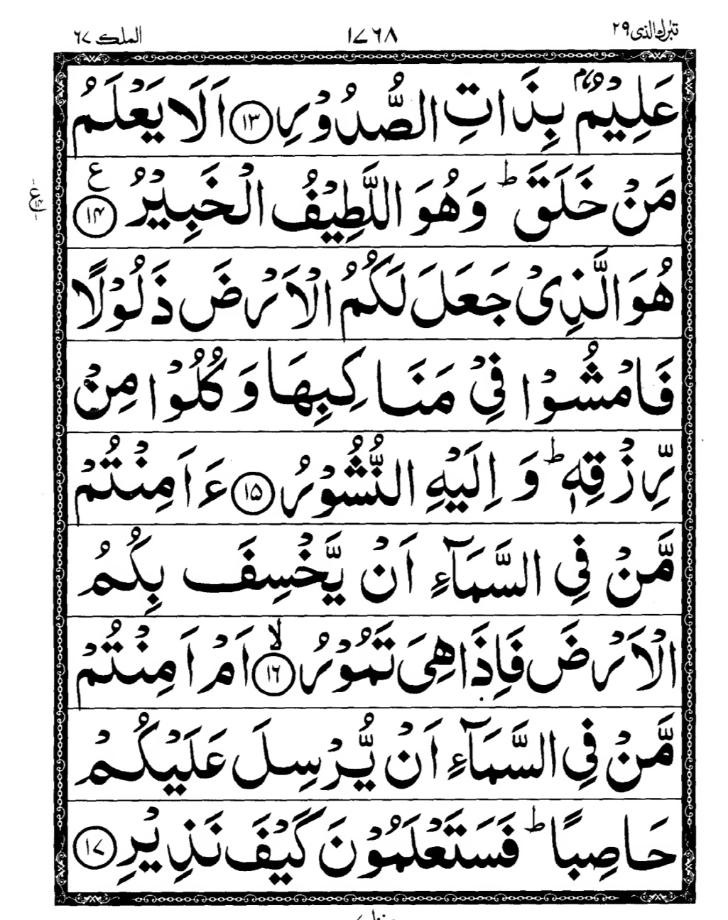 تبٰرك الذى ٢٩
١٧٦٨
الملك ٦٧
عَلِيْمٌۢ بِذَاتِ الصُّدُوْرِ ﴿١٣﴾ اَلَا يَعْلَمُ
مَنْ خَلَقَ ؕ وَهُوَ اللَّطِيْفُ الْخَبِيْرُ ﴿١٤﴾ ع
ع
هُوَ الَّذِىْ جَعَلَ لَكُمُ الْاَرْضَ ذَلُوْلًا
فَامْشُوْا فِىْ مَنَاكِبِهَا وَكُلُوْا مِنْ
رِّزْقِهٖ ؕ وَ اِلَيْهِ النُّشُوْرُ ﴿١٥﴾ ءَاَمِنْتُمْ
مَّنْ فِى السَّمَآءِ اَنْ يَّخْسِفَ بِكُمُ
الْاَرْضَ فَاِذَا هِىَ تَمُوْرُ ۙ﴿١٦﴾ اَمْ اَمِنْتُمْ
مَّنْ فِى السَّمَآءِ اَنْ يُّرْسِلَ عَلَيْكُمْ
حَاصِبًا ؕ فَسَتَعْلَمُوْنَ كَيْفَ نَذِيْرِ ﴿١٧﴾